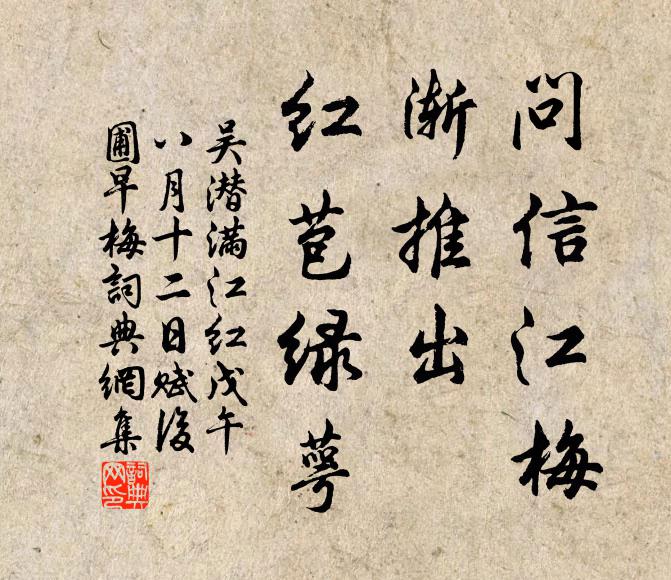 问信江梅
渐推出
红苞绿萼
吴潜满江红戊午
八月十二日赋后
圃早梅词典網集
詞典网印